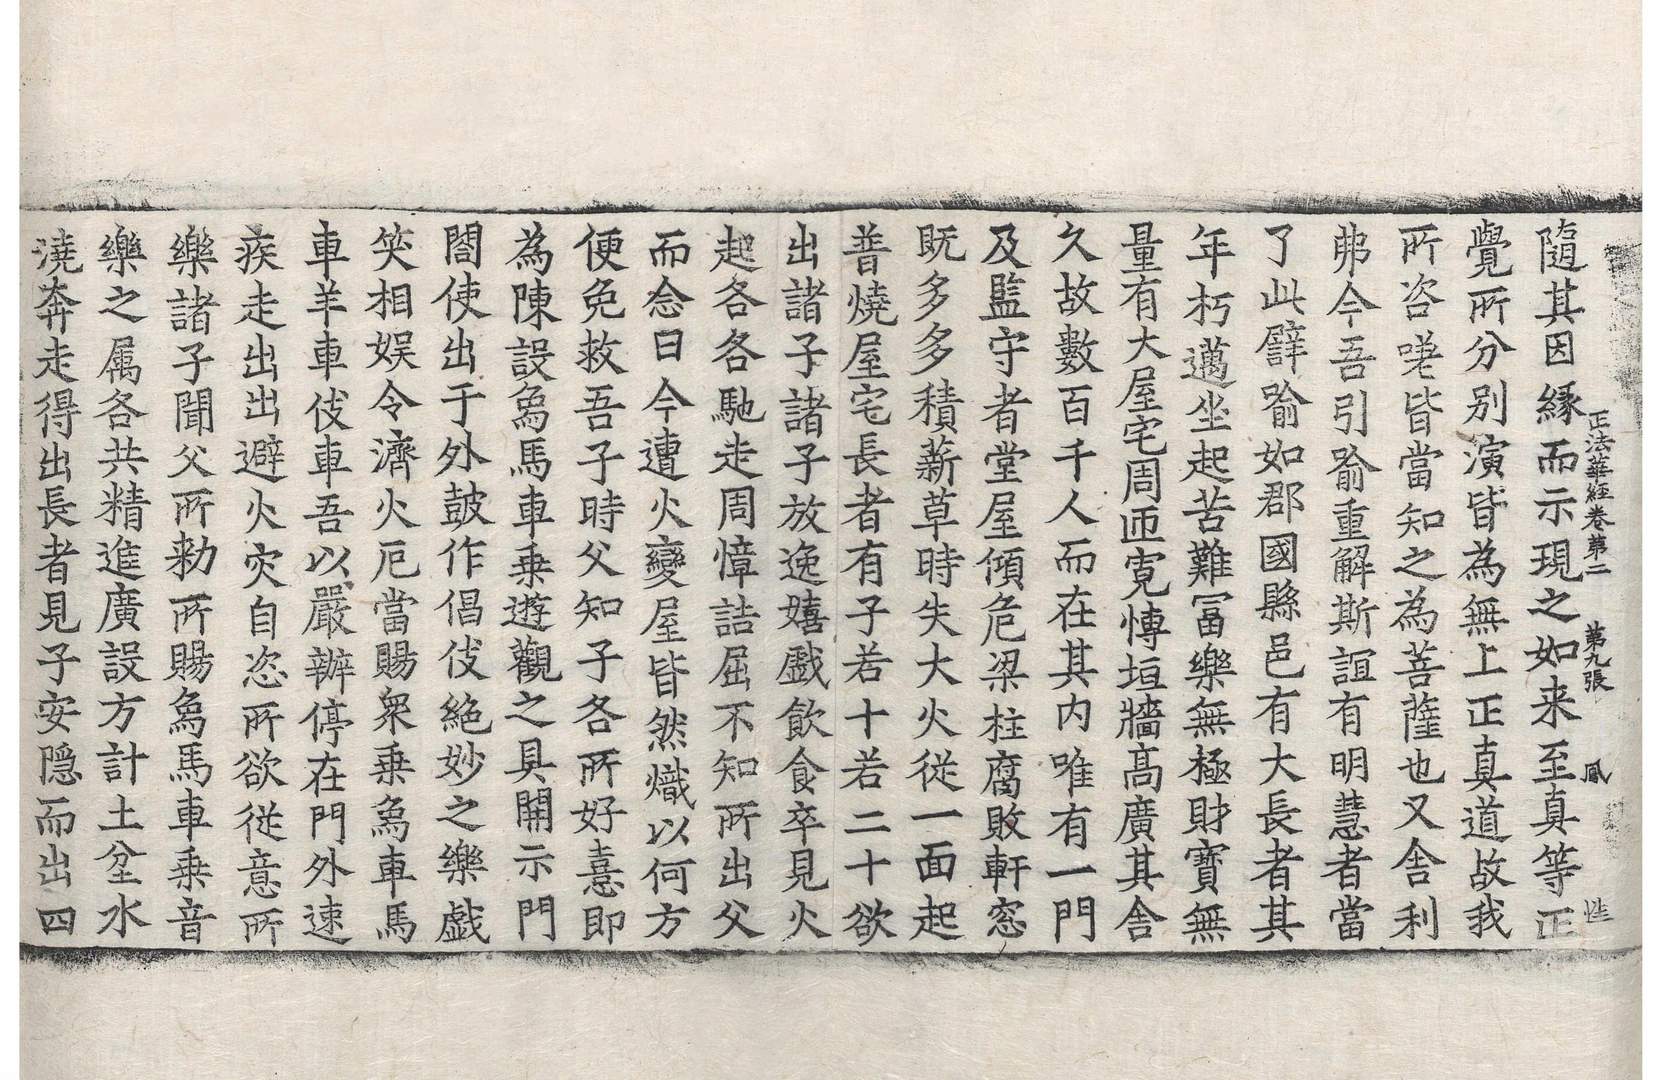 正法華經卷第二　第九張　鳳　性
隨其因緣而示現之如来至真等正
覺所分別演皆為無上正真道故我
所咨嗟皆當知之為菩薩也又舍利
弗今吾引喻重解斯誼有明慧者當
了此譬喻如郡國縣邑有大長者其
年朽邁坐起苦難冨樂無極財寶無
量有大屋宅周匝寛愽垣牆髙廣其舎
久故數百千人而在其内唯有一門
及監守者堂屋傾危梁柱腐敗軒窓
既多多積薪草時失大火從一面起
普燒屋宅長者有子若十若二十欲
出諸子諸子放逸嬉戲飲食卒見火
起各各馳走周慞詰屈不知所出父
而念曰今遭火變屋皆然熾以何方
便免救吾子時父知子各所好憙即
為陳設象馬車乗遊觀之具開示門
閤使出于外鼓作倡伎絶妙之樂戯
笑相娱令濟火厄當賜衆乗象車馬
車羊車伎車吾以嚴辦停在門外速
疾走出出避火灾自恣所欲從意所
樂諸子聞父所勑所賜象馬車乗音
樂之属各共精進廣設方計土坌水
澆奔走得出長者見子安隱而出四